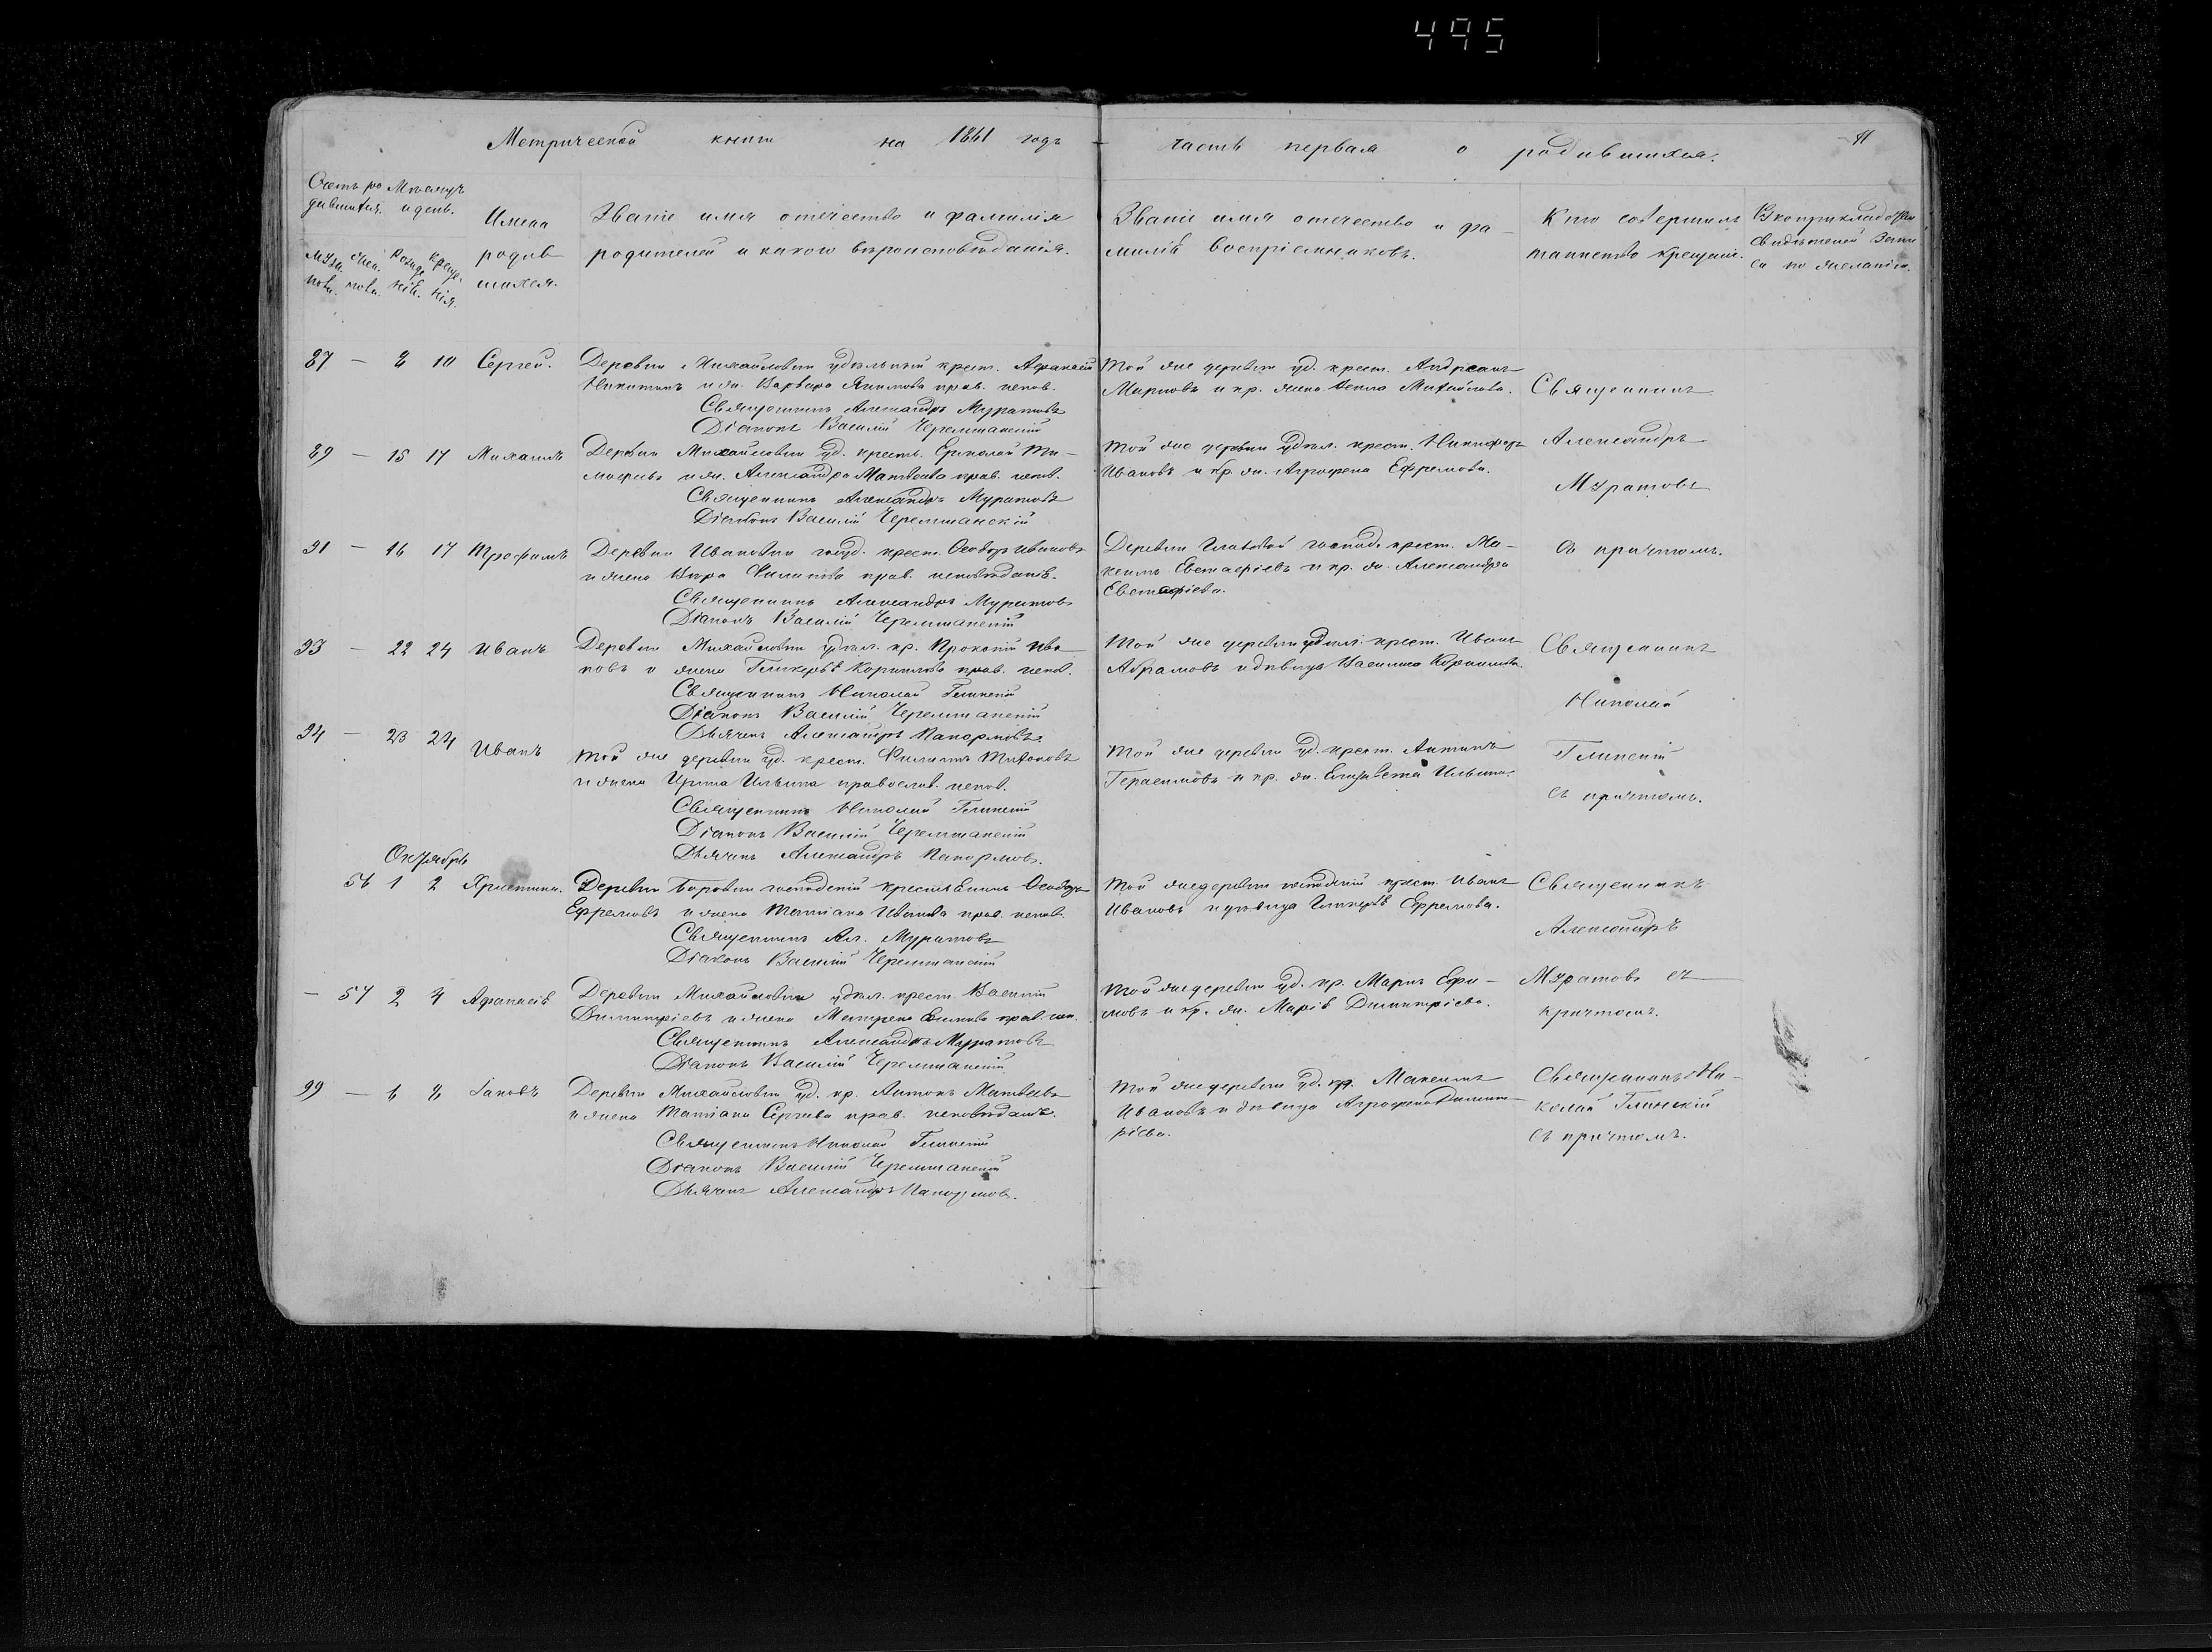 495
Метрической книги на 1861 годъ
часть первая о родившихся.
Счетъ ро Мѣсяцъ
дившихся. и день.
Имена
родив
шихся.
Званіе имя отечество и фамилія
родителей и какого вѣроисповѣданія.
Званіе имя отечество и фа-
милія воспріемниковъ.
Кто совершилъ
таинство крещенія.
Рукоприкладство
свидѣтелей запи
си по желанію.
87 — 8 10 Сергей. Деревни Михайловки удѣльный крест. Афанасій
Никитинъ и жи. Варвара Якимова прав. испов.
Священникъ Александръ Муратовъ
Діаконъ Василій Черемшанскій
Той же деревни уд. крест. Андреанъ
Марковъ и кр. жена Текла Михайлова.
Священникъ
89 — 15 17 Михаилъ Деревни Михайловки уд. крест. Ермолай Ти-
мофеевъ и жи. Александра Матвѣева прав. испов.
Священникъ Александръ Муратовъ
Діаконъ Василій Черемшанскій
Той же деревни удѣл. крест. Никифоръ
Ивановъ и кр. жи. Агрофена Ефремова.
Александръ
Муратовъ
съ причтомъ.
91 — 16 17 Трофимъ Деревни Ивановки госуд. крест. Ѳеодоръ Ивановъ
и жена Вѣра Филипова прав. исповѣданія.
Священникъ Александръ Муратовъ
Діаконъ Василій Черемшанскій
Деревни господ. крест. Ма-
ксимъ Евстафіевъ и кр. жи. Александра
Евстафіева.
93 — 22 24 Иванъ Деревни Михайловки удѣл. кр. Прокопій Ива
новъ и жена Гликерія Корнилова прав. испов.
Священникъ Николай Глинскій
Діаконъ Василій Черемшанскій
Дьячекъ Александръ Панормовъ.
Той же деревни удѣл. крест. Иванъ
Абрамовъ и дѣвица Василиса Корнилова.
Священникъ
Николай
Глинскій
съ причтомъ.
94 — 23 24 Иванъ Той же деревни уд. крест. Филипъ Тихоновъ
и жена Ирина Ильина православ. испов.
Священникъ Николай Глинскій
Діаконъ Василій Черемшанскій
Дьячекъ Александръ Панормовъ.
Той же деревни уд. крест. Антипъ
Герасимовъ и кр. жи. Елизавета Ильина.
Октябрь
56 1 2 Христина. Деревни Боровки господскій крестьянинъ Ѳеодоръ
Ефремовъ и жена Татіана Иванова прав. испов.
Священникъ Ал. Муратовъ
Діаконъ Василій Черемшанскій
Той же деревни господскій крест. Иванъ
Ивановъ и дѣвица Гликерія Ефремова.
Священникъ
Александръ
Муратовъ съ
причтомъ.
— 57 2 4 Афанасія Деревни Михайловки удѣл. крест. Василій
Димитріевъ и жена Матрена прав. исп.
Священникъ Александръ Муратовъ
Діаконъ Василій Черемшанскій
Той же деревни уд. кр. Маркъ Ефи-
мовъ и кр. жи. Марія Димитріева.
99 — 6 8 Іаковъ Деревни Михайловки уд. кр. Антонъ Матвѣевъ
и жена Татіана Сергѣева прав. исповѣданія.
Священникъ Николай Глинскій
Діаконъ Василій Черемшанскій
Дьячекъ Александръ Панормовъ.
Той же деревни уд. кр. Максимъ
Ивановъ и дѣвица Агрофена Димит-
ріева.
Священникъ Ни-
колай Глинскій
съ причтомъ.